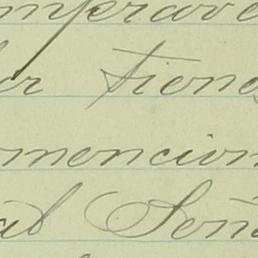 mprave
er tiene
mencion
al Seño